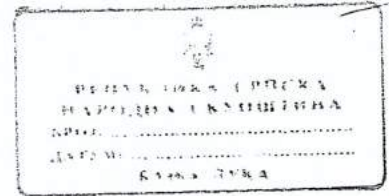 РЕПУБЛИКА СРПСКА
НАРОДНА СКУПШТИНА
БРОЈ:
ДАТУМ:
БАЊА ЛУКА